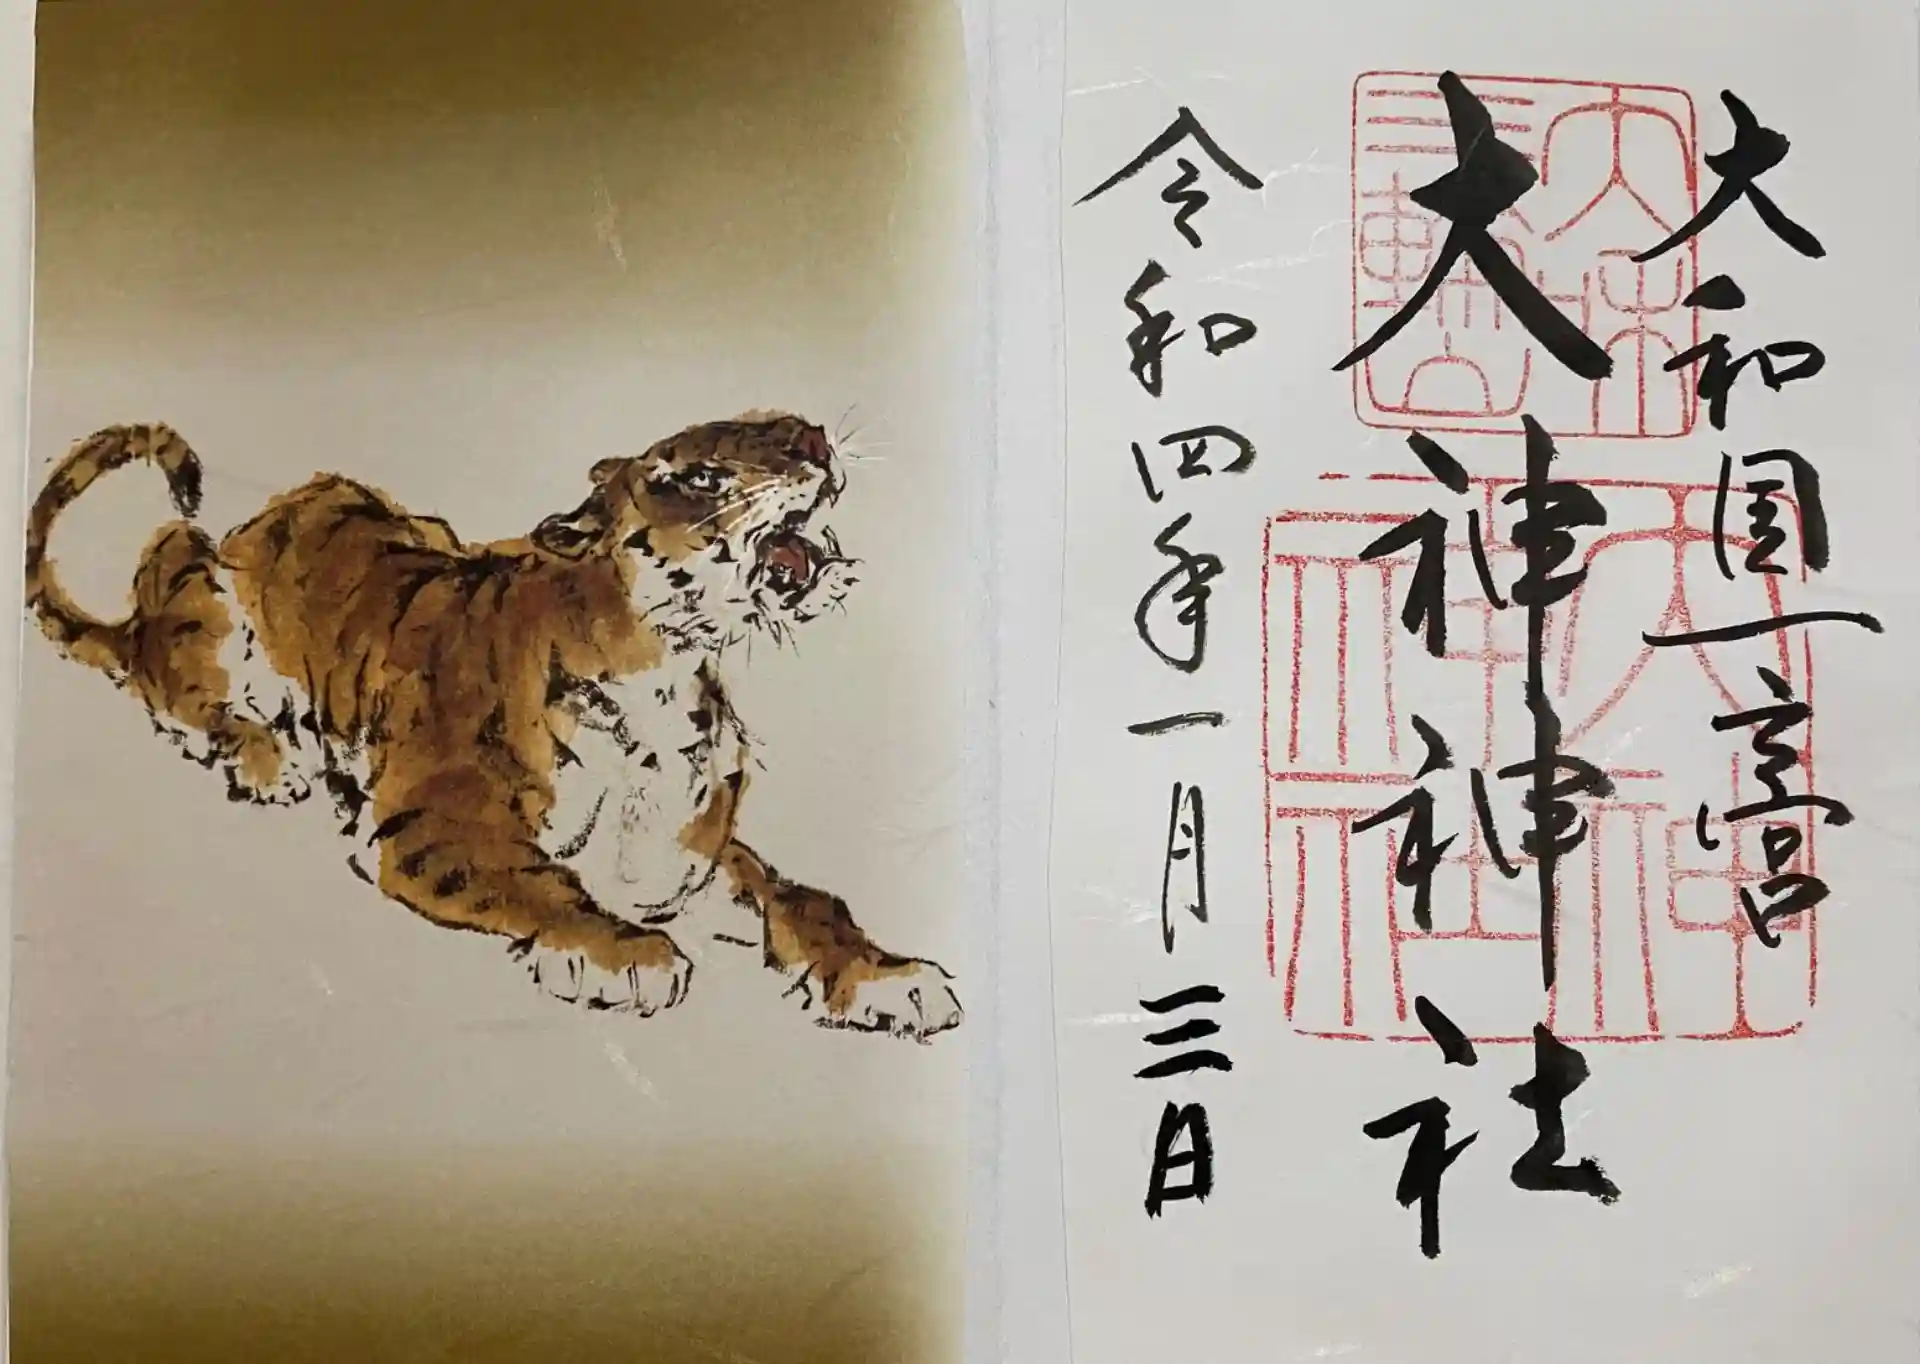 大和国一宮
大神神社
令和四年一月三日
大神
神社